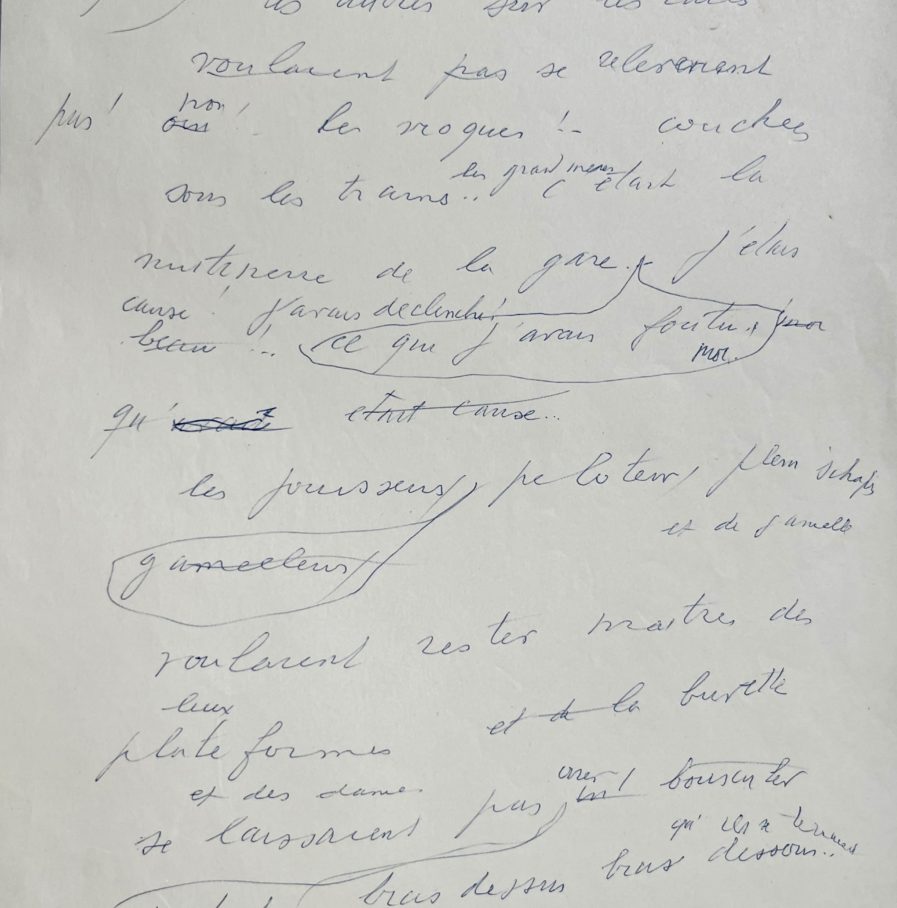 les autres sur les
voulaient pas se relevaient
pas! non oui! les vioques!.. couchées
sous les trains.. les grand meres c'était la
de la gare. j'étais
cause! j'avais declenché!
beau!.. ce que j'avais foutu. moi
moi.
qu' était cause...
les jouisseurs, peloteurs, plein
et de gamelle
gamelleurs
voulaient rester maitres des
lieux
plate formes et de la buvette
et des dames
se laissaient pas bousculer
qui
bras dessus bras dessous..